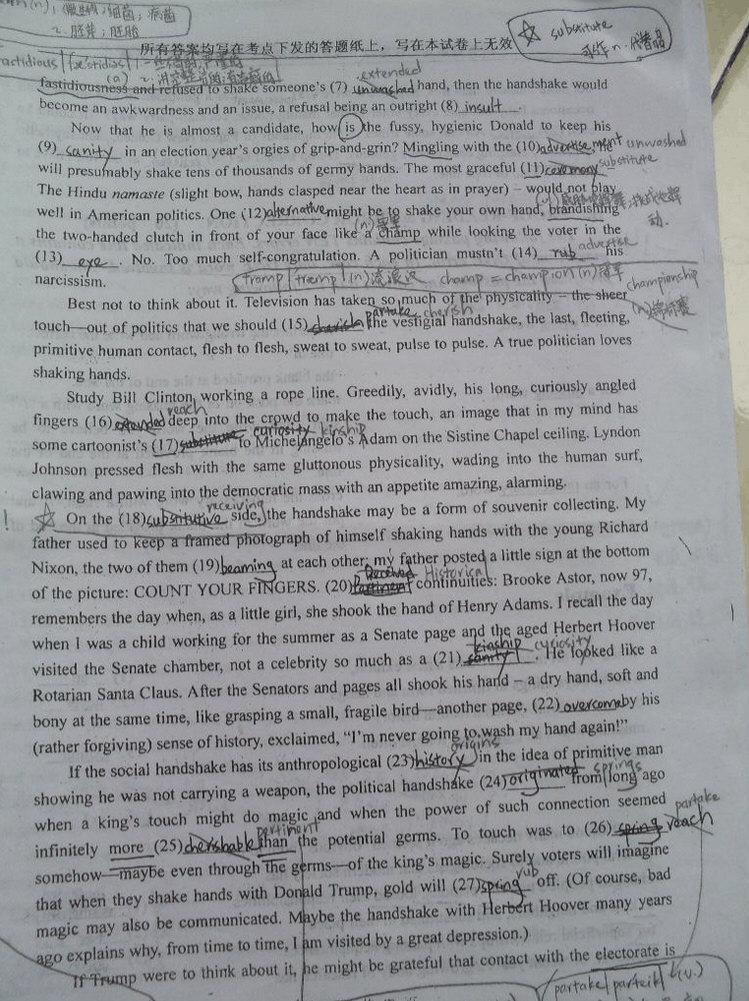 (n), 微生物; 细菌; 病菌
2. 胚芽; 胚胎
所有答案均写在考点下发的答题纸上，写在本试卷上无效
☆ substitute
n. 代替品
(a)
extended
fastidiousness and refused to shake someone's (7) unwashed hand, then the handshake would
become an awkwardness and an issue, a refusal being an outright (8) insult.
Now that he is almost a candidate, how is the fussy, hygienic Donald to keep his
(9) sanity in an election year's orgies of grip-and-grin? Mingling with the (10) advertisement unwashed
will presumably shake tens of thousands of germy hands. The most graceful (11) ceremony substitute
The Hindu namaste (slight bow, hands clasped near the heart as in prayer) – would not play
well in American politics. One (12) alternative might be to shake your own hand, brandishing
the two-handed clutch in front of your face like a champ while looking the voter in the
(13) eye. No. Too much self-congratulation. A politician mustn't (14) rub advertise his
narcissism.
tramp (n) 流浪汉 champ = champion (n) 冠军 championship
(n) 锦标赛
Best not to think about it. Television has taken so much of the physicality – the sheer
touch—out of politics that we should (15) cherish partake cherish the vestigial handshake, the last, fleeting,
primitive human contact, flesh to flesh, sweat to sweat, pulse to pulse. A true politician loves
shaking hands.
Study Bill Clinton working a rope line. Greedily, avidly, his long, curiously angled
fingers (16) extended reach deep into the crowd to make the touch, an image that in my mind has
some cartoonist's (17) substitute curiosity kinship to Michelangelo's Adam on the Sistine Chapel ceiling. Lyndon
Johnson pressed flesh with the same gluttonous physicality, wading into the human surf,
clawing and pawing into the democratic mass with an appetite amazing, alarming.
! ☆ On the (18) substitutive receiving side, the handshake may be a form of souvenir collecting. My
father used to keep a framed photograph of himself shaking hands with the young Richard
Nixon, the two of them (19) beaming at each other; my father posted a little sign at the bottom
of the picture: COUNT YOUR FINGERS. (20) Pertinent Received Historical continuities: Brooke Astor, now 97,
remembers the day when, as a little girl, she shook the hand of Henry Adams. I recall the day
when I was a child working for the summer as a Senate page and the aged Herbert Hoover
visited the Senate chamber, not a celebrity so much as a (21) sanity kinship curiosity. He looked like a
Rotarian Santa Claus. After the Senators and pages all shook his hand – a dry hand, soft and
bony at the same time, like grasping a small, fragile bird—another page, (22) overcome by his
(rather forgiving) sense of history, exclaimed, “I'm never going to wash my hand again!”
If the social handshake has its anthropological (23) history origins in the idea of primitive man
showing he was not carrying a weapon, the political handshake (24) originated springs from long ago
when a king's touch might do magic and when the power of such connection seemed
infinitely more (25) cherishable pertinent than the potential germs. To touch was to (26) spring reach partake
somehow—maybe even through the germs—of the king's magic. Surely voters will imagine
that when they shake hands with Donald Trump, gold will (27) spring rub off. (Of course, bad
magic may also be communicated. Maybe the handshake with Herbert Hoover many years
ago explains why, from time to time, I am visited by a great depression.)
If Trump were to think about it, he might be grateful that contact with the electorate is
partake (v.)